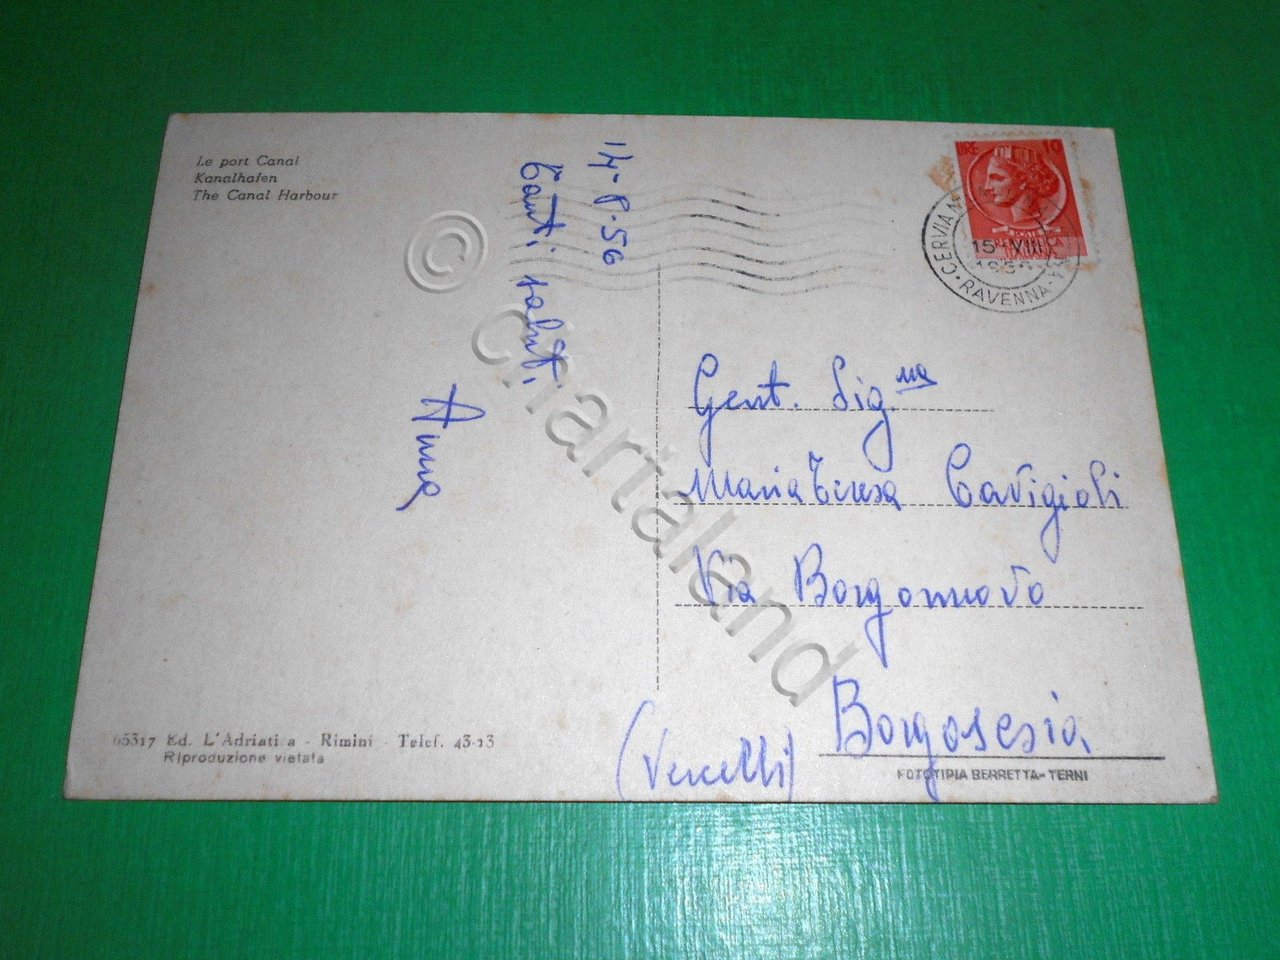 Le port Canal
Kanalhafen
The Canal Harbour
14-8-56
Tanti saluti
Anna
LIRE 10
CERVIA
15 VIII
RAVENNA
Gent. Sig.na
Maria Teresa Cavigioli
Via Borgonuovo
Borgosesia
(Vercelli)
65317 Ed. L'Adriatica - Rimini - Telef. 43-13
Riproduzione vietata
FOTOTIPIA BERRETTA - TERNI
© chartaland